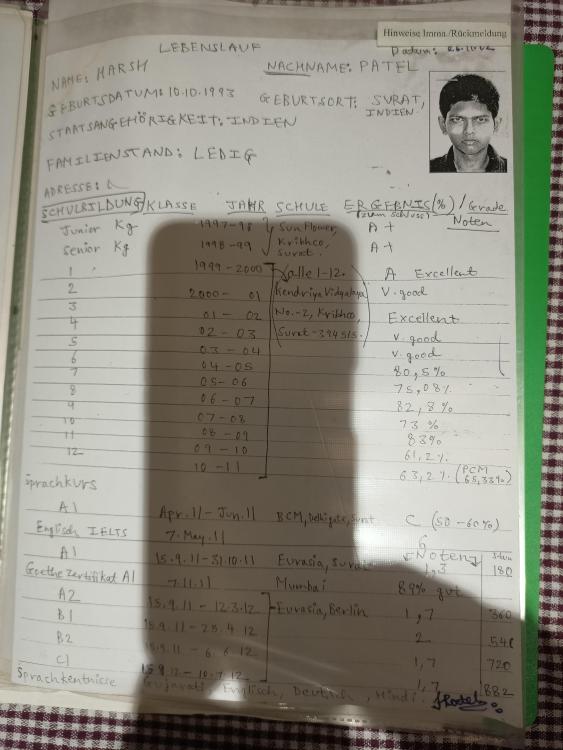 Hinweise Imma./Rückmeldung
LEBENSLAUF
Datum:
NAME: HARSH NACHNAME: PATEL
GEBURTSDATUM: 10.10.1993 GEBURTSORT: SURAT,
INDIEN
STAATSANGEHÖRIGKEIT: INDIEN
FAMILIENSTAND: LEDIG
ADRESSE:
SCHULBILDUNG KLASSE JAHR SCHULE ERGEBNIS (%) / Grade
(zum schluss) Noten
Junior Kg 1997-98 Sun flower, A+
Senior Kg 1998-99 Kribhco, A+
Surat.
1 1999-2000 (alle 1-12. A Excellent
2 2000-01 Kendriya Vidyalaya V.good
3 01-02 No.-2, Kribhco, Excellent
4 02-03 Surat-394515. V.good
5 03-04 V.good
6 04-05 80,5%
7 05-06 75,08%
8 06-07 82,8%
9 07-08 73%
10 08-09 83%
11 09-10 61,2%
12 10-11 63,2% (PCM
65,33%)
Sprachkurs
A1 Apr.11-Jun.11 BCM, Delhigate, Surat C (50-60%)
Englisch IELTS 7.May.11 6
Noten
A1 15.9.11-31.10.11 Eurasia, Surat 1,3 180
Goethe Zertifikat A1 7.11.11 Mumbai 89% gut
A2 15.9.11-12.3.12 Eurasia, Berlin 1,7 360
B1 15.9.11-25.4.12 2 540
B2 15.9.11-6.6.12 1,7 720
C1 15.9.12-10.7.12 1,7 882
Sprachkentnisse Gujarati, Englisch, Deutsch, Hindi.